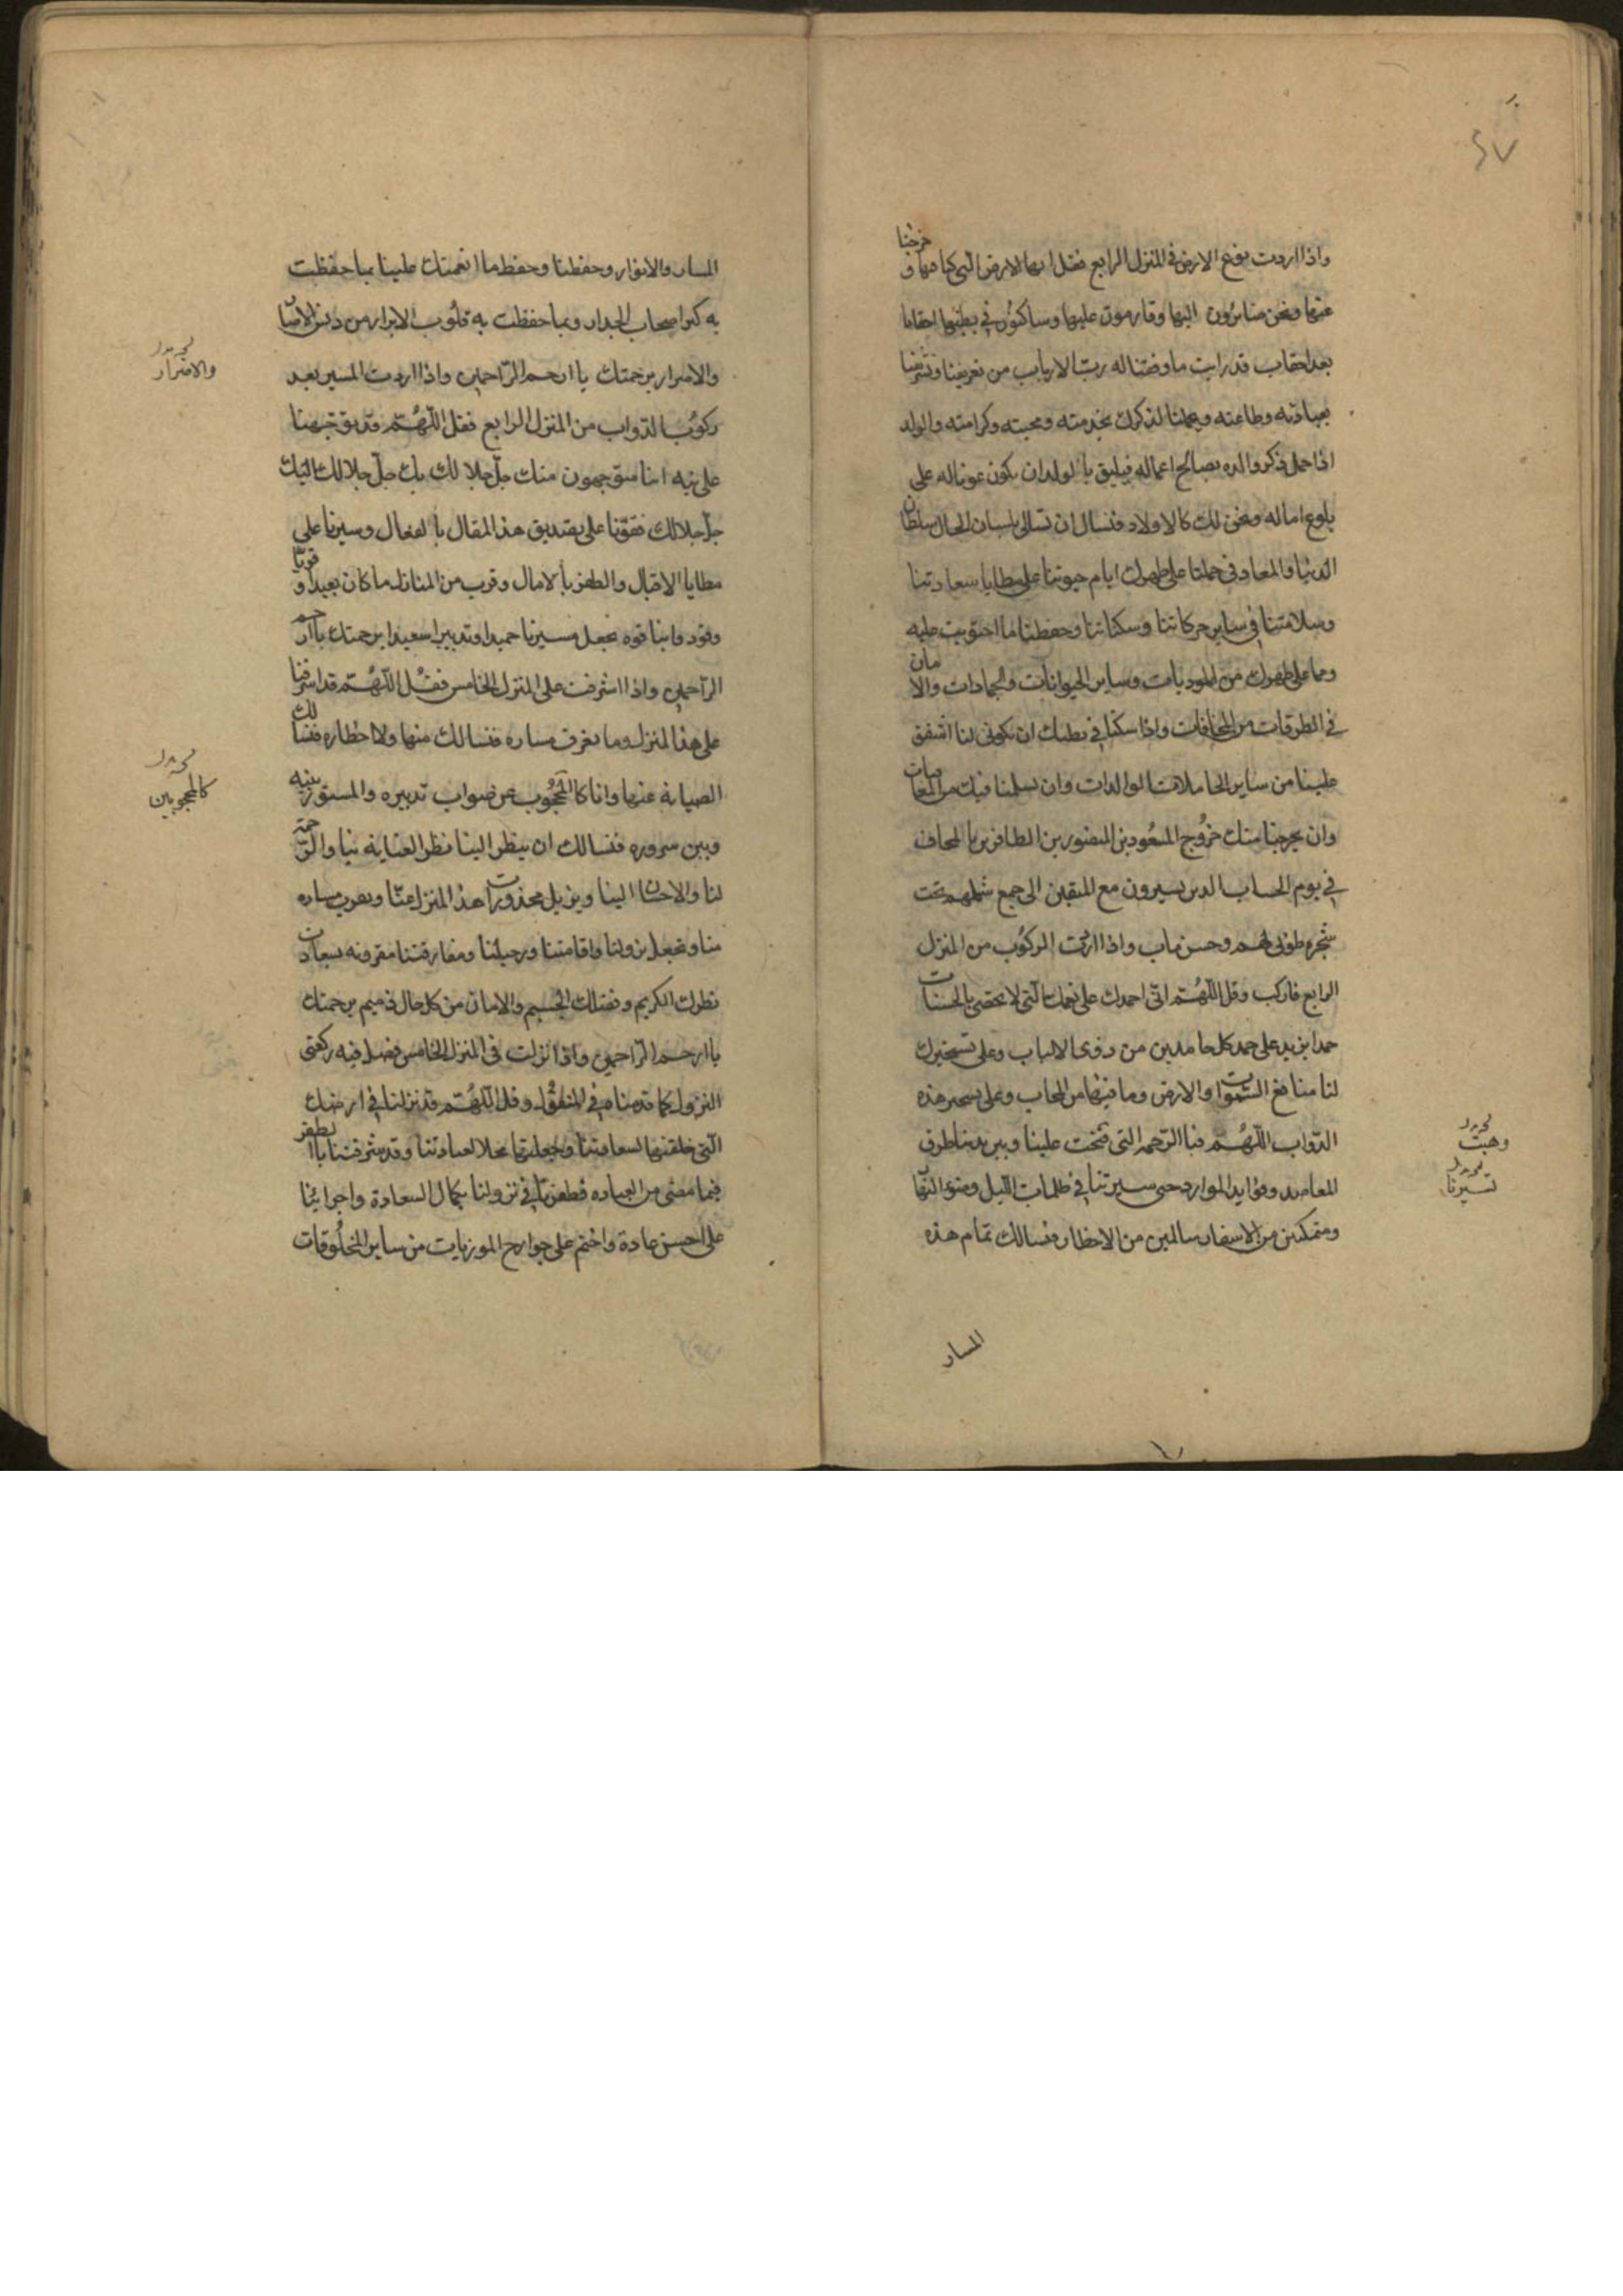 ٤٧
واذا اردت توديع الارض فى المنزل الرابع فقل ايها الارض التى كنا فيها و خرجنا
عنها ونحن صائرون اليها وقادمون عليها وساكنون فى بطنها احقابا
بعد احقاب قد رايت ما وفقنا له رب الارباب من تعريفنا وتشريفنا
بعبادته وطاعته وجعلنا لذكرك بخدمته ومحبته وكرامته والولد
اذا حمل ذكر والده بصالح اعماله فيليق بالولد ان يكون عونا له على
بلوغ اماله ونحن لك كالاولاد فنسال ان تسالى بلسان الحال سلطان
الدنيا والمعاد فى حملنا على ظهرك ايام حيوتنا على مطايا سعادتنا
وسلامتنا فى ساير حركاتنا وسكناتنا وحفظنا مما احتويت عليه
ومما على ظهرك من الموذيات وساير الحيوانات والجمادات والامان
فى الطرقات من المخافات واذا سكنا فى بطنك ان تكونى لنا اشفق
علينا من ساير الحاملات الوالدات وان تسلمنا فيك من المعاصات
وان يخرجنا منك خروج المسعودين المنصورين الظافرين بالمحاب
فى يوم الحساب الذين يسيرون مع المتقين الى جمع شملهم تحت
شجره طوبى لهم وحسن ماب واذا اردت الركوب من المنزل
الرابع فاركب وقل اللهم انى احمدك على نعمك التى لا تحصى بالحسنات
حمدا يزيد على حمد كل حامدين من ذوى الالباب وعلى تسخيرك
لنا منافع السموات والارض وما فيها من المحاب وعلى تسخير هذه
الدواب اللهم فبالرحمه التى فتحت علينا وبين يدينا طرق
المقاصد وفوايد الموارد حتى سيرتنا فى ظلمات الليل وضوء النهار
ومتمكنين من الاسفار سالمين من الاخطار ونسالك تمام هذه
نخه بدل
وهبت
نخه بدل
تسيرنا
المسار
المسار والانوار وحفظنا وحفظ ما انعمت علينا بما حفظت
به كنز اصحاب الجدار وبما حفظت به قلوب الابرار من دنس الاصار
والاصرار برحمتك يا ارحم الراحمين واذا اردت المسير بعد
ركوب الدواب من المنزل الرابع فقل اللهم قد توجهنا
على نيه اننا متوجهون منك جل جلالك بك جل جلالك اليك
جل جلالك فقونا على تصديق هذا المقال بالفعال وسيرنا على
مطايا الاقبال والظفر بالامال وقرب من المنازل ما كان بعيدا و قونا
وقود دوابنا قوه تجعل مسيرنا حميدا وتدبيرا سعيدا برحمتك يا ارحم
الراحمين واذا اشرفت على المنزل الخامس فقل اللهم قد اشرفنا
على هذا المنزل وما نعرف مساره فنسالك منها ولا اخطاره فنسالك
الصيانه عنها وانا كالمحجوب عن صواب تدبيره والمستور بينه
وبين سروره فنسالك ان تنظر الينا نظر العنايه بنا والرحمه
لنا والاحسان الينا ويزيل محذورات هذا المنزل عنا ويقرب مساره
منا وتجعل نزولنا واقامتنا ورحيلنا ومفارقتنا مقرونه بسعادات
نظرك الكريم وفضلك الجسيم والامان من كل حال ذميم برحمتك
يا ارحم الراحمين واذا نزلت فى المنزل الخامس فصل فيه ركعتى
النزول كما قدمناه فى المنقول وقل اللهم قد نزلنا فى ارضك
التى خلقتها لسعادتنا وجعلتها محلا لعبادتنا وقد شرفتنا بالظفر
فيما مضى من العباده فظفرنا فى نزولنا بكمال السعادة واجرائنا
على احسن عادة واختم على جوارح الموذيات من ساير المخلوقات
نخه بدل
والاضرار
نخه بدل
كالمحجوبين